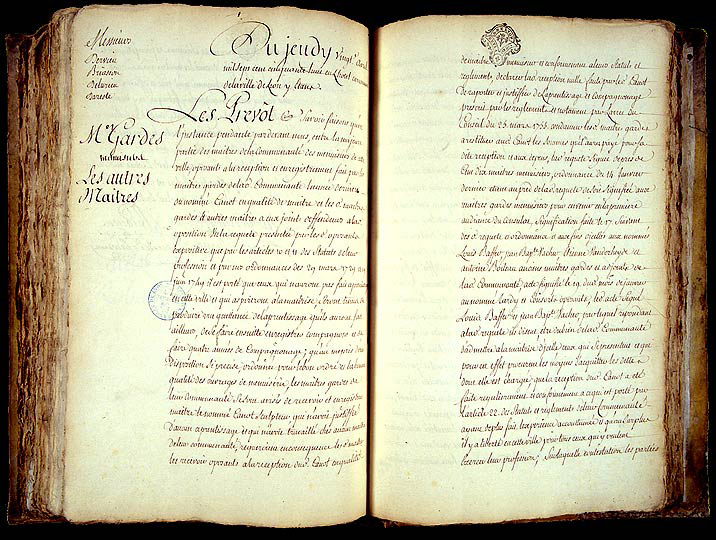 Messieurs
Berrieu
Briasson
Delurieu
Bareste
Mes Gardes
menuisiers
Les autres
Maitres
Du jeudy vingt
mil sept cent cinquante
de la ville de Lion y tenus
Les Prevôt &c Savoir faisons que
L'instance pendante pardevant nous, entre la majeure
partie des maitres de la Communauté des menuisiers de
ville, oposant a la reception et enregistrement fait par les
maitres gardes de lad Communauté l'année derniere
du nommé Canot en qualité de maitre et les dts maitres
gardes & autres maitres a eux joint deffendeurs a lad
oposition Vu la requete presentée par les ds oposants
expositive que par les articles 10 et 11 des Statuts de leur
profession et par nos ordonnances des 29 mars 1714
juin 1749 il est porté que ceux qui n'auront pas fait aprentissage
en cette ville et qui aspireront a la maitrise, seront tenus de
produire une quittance de l'aprentissage qu'ils auront fait
ailleurs, de se faire ensuite enregistrer compagnons et de
faire quatre années de Compagnonage; qu'au mepris d'une
disposition si precise, ordonnée pour le bon ordre et la bonne
qualité des ouvrages de menuiserie, les maitres gardes de
leur Communauté se sont avisés de recevoir et enregistrer
maitre le nommé Canot Sculpteur qui n'avoit justiffié
d'aucun aprentissage et qui n'avoit travaillé chez aucun maitre
de leur communauté, requeroient en consequence les ds
les recevoir oposants a la reception dud Canot en qualité
de maitre menuisier et conformement a leurs Statuts et
reglements, declarer lad reception nulle faute par led Canot
de raporter et justiffier de l'aprentissage et Compagnonage
prescrit par les reglements et notament par l'arret du
Conseil du 25 mars 1755, condamner les ds maitres gardes
a restituer aud Canot les sommes qu'il aura payé pour sa
dte reception et aux depens, lad requete signée de pres de
cent dix maitres menuisiers, ordonnance du 14 janvier
dernier etant au pied de lad requete de soit signiffié aux
maitres gardes menuisiers pour en venir en la premiere
audiance du Consulat, signiffication faite le 17 suivant
des ds requete et ordonnance a ces fins cy dessus aux nommés
Louis Baffert, jean Baptte Pacher, Etienne Vanderheyde et
antoine Boileau anciens maitres gardes et adjoints de
lad Communauté, acte signiffié le 19 dud mois de janvier
au nommé Lardy et Consorts oposants, led acte signé
Louis Baffert et jean Baptte Pacher, par lequel repondant
a lad requete ils disent etre du bien de la Communauté
d'admettre a la maitrise Ceux qui se presentent et que
pour en effet procurer les moyens d'acquitter les dettes
dont elle est chargée, que la reception dud Canot a eté
faite regulierement et conformement a ce qui est porté par
l'article 22 des Statuts et reglements de leur Communauté
ayant de plus fait l'experience accoutumée et qu'au surplus
il y a liberté en cette ville pour tous ceux qui y veulent
exercer leur profession; Sur laquelle contestation les parties